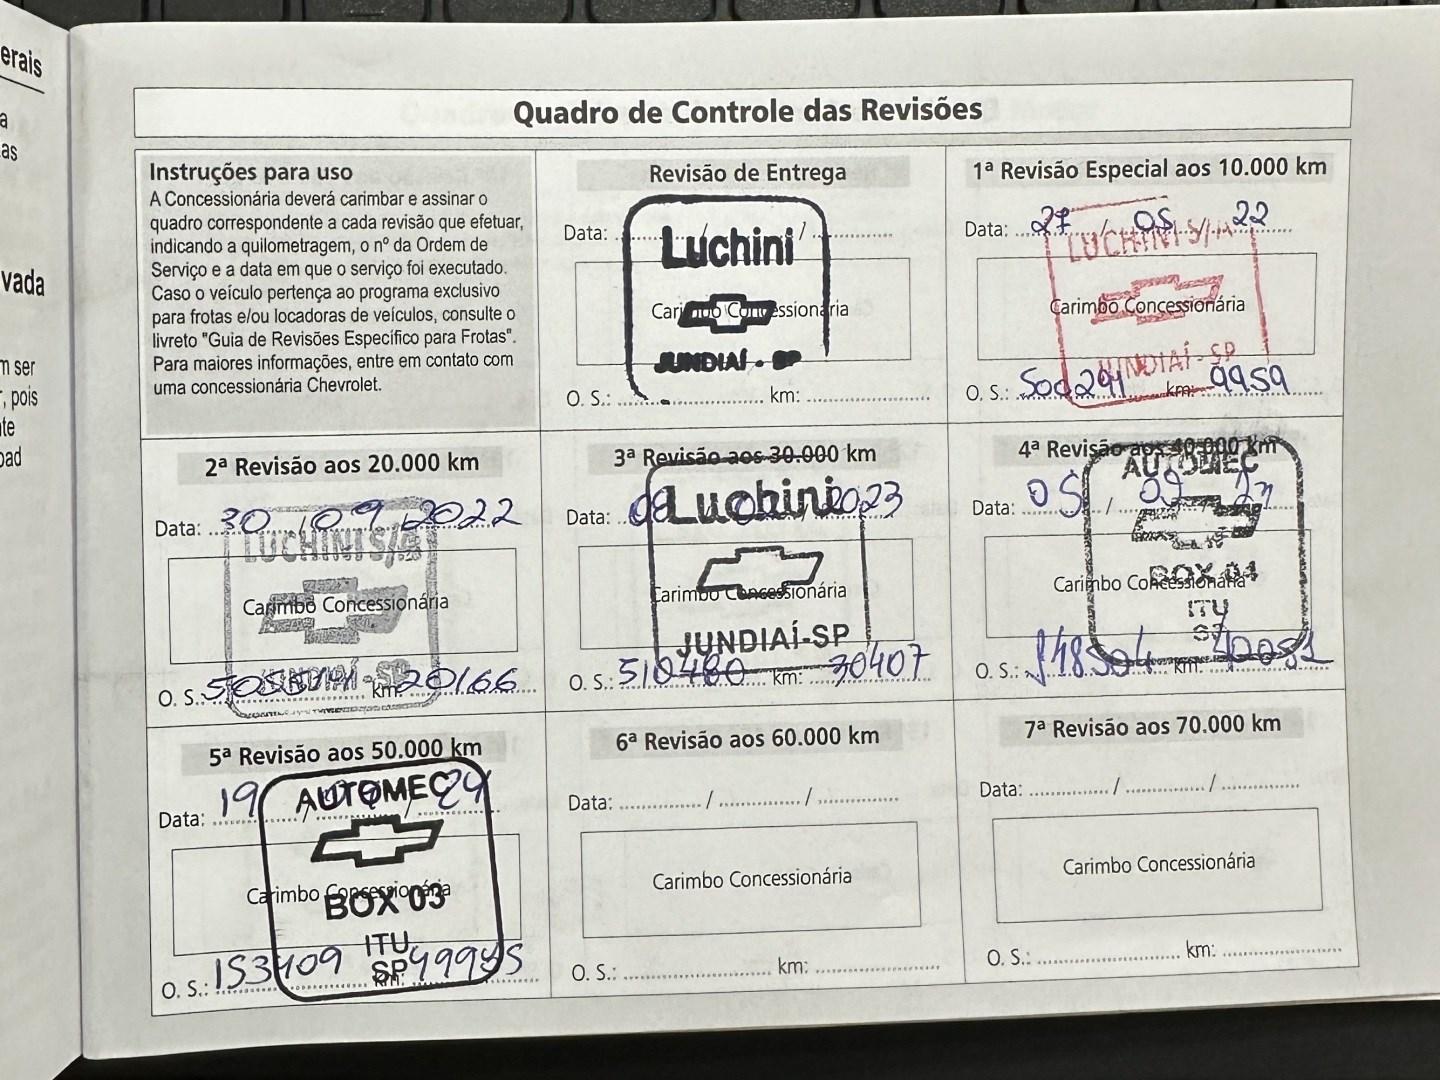 erais
a
as
vada
m ser
r, pois
nte
oad
Quadro de Controle das Revisões
Instruções para uso
A Concessionária deverá carimbar e assinar o
quadro correspondente a cada revisão que efetuar,
indicando a quilometragem, o nº da Ordem de
Serviço e a data em que o serviço foi executado.
Caso o veículo pertença ao programa exclusivo
para frotas e/ou locadoras de veículos, consulte o
livreto "Guia de Revisões Específico para Frotas".
Para maiores informações, entre em contato com
uma concessionária Chevrolet.
Revisão de Entrega
Data: ........../........../..........
Luchini
Carimbo Concessionária
JUNDIAÍ - SP
O. S.: .......... km: ..........
1ª Revisão Especial aos 10.000 km
Data: 27 / 05 / 22
LUCHINI S/A
Carimbo Concessionária
JUNDIAÍ - SP
O. S.: 500291 km: 9959
2ª Revisão aos 20.000 km
Data: 30 / 09 / 2022
LUCHINI S/A
Carimbo Concessionária
JUNDIAÍ - SP
O. S.: km: 20166
3ª Revisão aos 30.000 km
Data: 08 / / 2023
Luchini
Carimbo Concessionária
JUNDIAÍ-SP
O. S.: 510480 km: 30407
4ª Revisão aos 40.000 km
AUTOMEC
Data: 05 / 09 /
BOX 04
Carimbo Concessionária
ITU
SP
O. S.: 148504 km:
5ª Revisão aos 50.000 km
AUTOMEC
Data: 19 / / 24
Carimbo Concessionária
BOX 03
ITU
SP
O. S.: 153409 km:
6ª Revisão aos 60.000 km
Data: ........../........../..........
Carimbo Concessionária
O. S.: .......... km: ..........
7ª Revisão aos 70.000 km
Data: ........../........../..........
Carimbo Concessionária
O. S.: .......... km: ..........